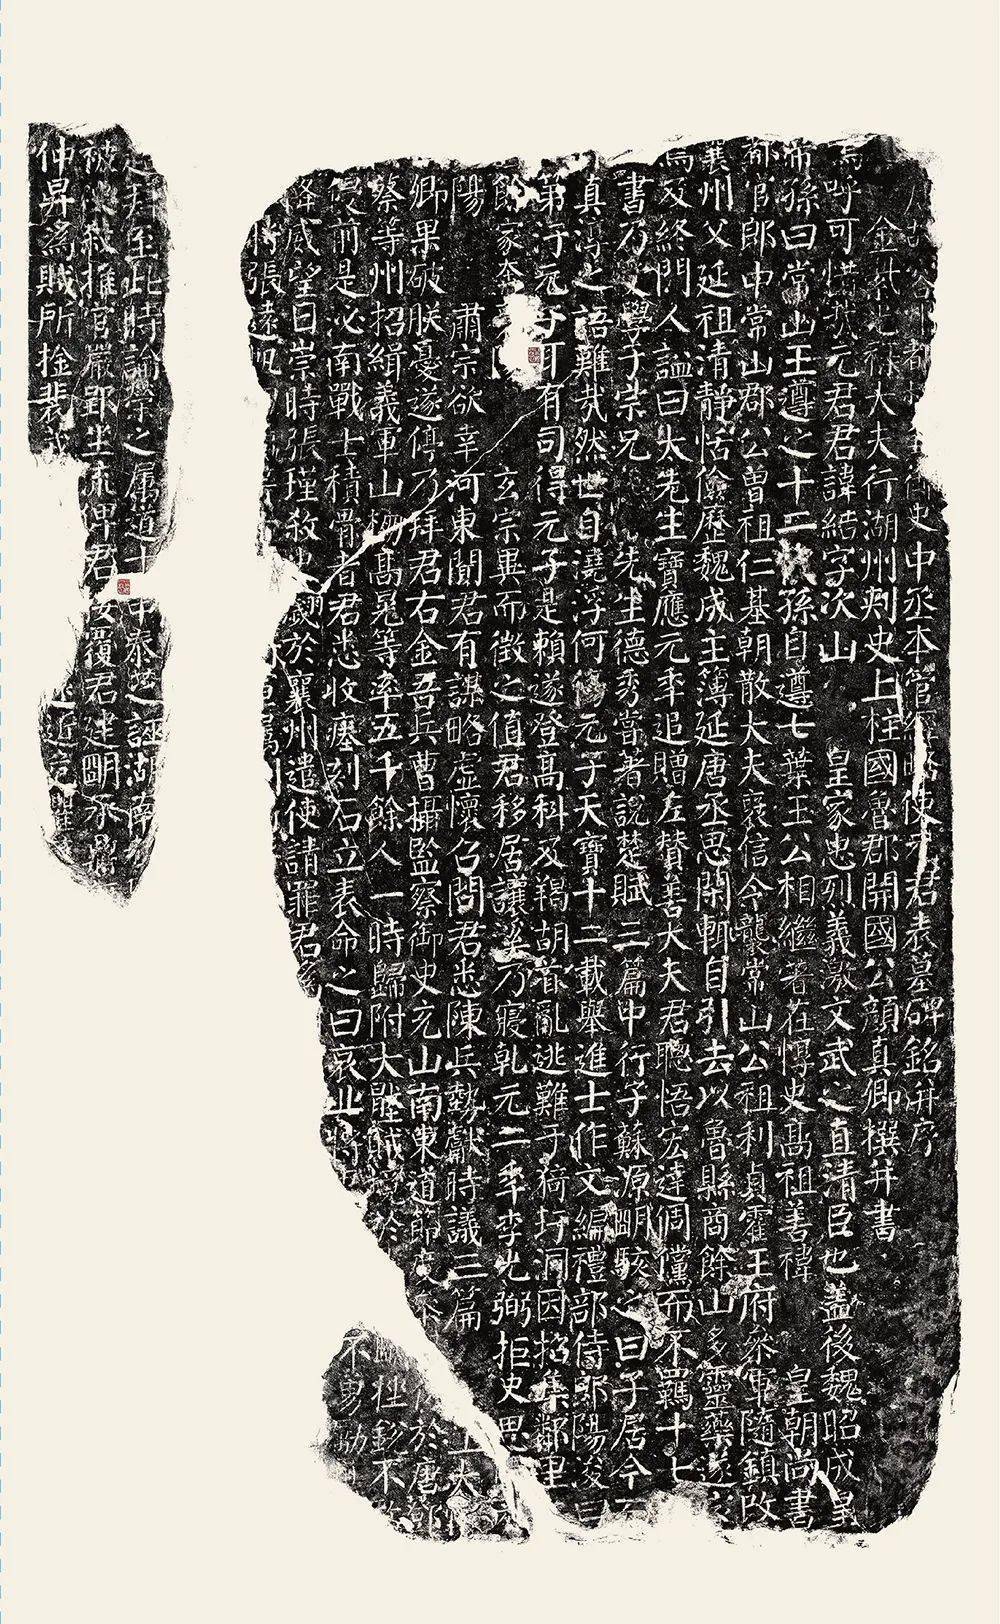 御史中丞本管經略使元君表墓碑銘并序
金紫光祿大夫行湖州刾史上柱國魯郡開國公顔真卿撰并書
嗚呼可惜哉元君君諱結字次山 皇家忠烈義激文武之直清臣也盖後魏昭成皇
帝孫曰常山王遵之十二代孫自遵七葉王公相繼著在惇史髙祖善禕 皇朝尚書
都官郎中常山郡公曽祖仁基朝散大夫襃信令襲常山公祖利貞霍王府叅軍隨鎮改
襄州父延祖清静恬儉歷魏成主簿延唐丞思閑輒自引去以魯縣商餘山多靈藥遂家
焉及終門人諡曰太先生寶應元年追贈左賛善大夫君聰悟宏達倜儻而不羈十七
書乃受學于宗兄 先生德秀甞著説楚賦三篇中行子蘇源明駭之曰子居今而
真淳之語難㢤然世自澆浮何傷元子天寶十二載舉進士作文編禮部侍郎陽浚曰
第汙元子耳有司得元子是頼遂登髙科及羯胡首亂逃難于猗玗洞因招集鄰里
餘家奔 玄宗異而徵之值君移居讓溪乃寢乹元二年李光弼拒史思
陽 肅宗欲幸河東聞君有謀略虚懷召問君悉陳兵勢獻時議三篇
卿果破朕憂遂停乃拜君右金吾兵曹攝監察御史充山南東道節度叅 於唐鄧
蔡等州招緝義軍山棚髙晃等率五千餘人一時歸附大壓賊境於
侵前是泌南戰士積骨者君悉收瘞刻石立表命之曰哀丘將 不勇勵
降威望日崇時張瑾殺 翽於襄州遣使請罪君爲
將張遠帆
拜至此時論榮之屬道士申泰芝誣湖南
被 推官嚴郢坐流俾君按覆君建明承鼎
仲昇為賊所擒裴